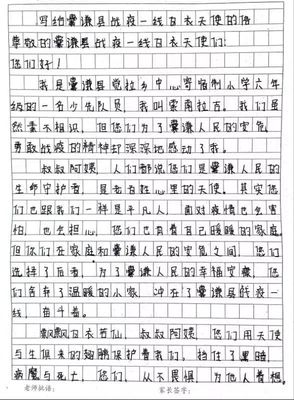 写给囊谦县战疫一线白衣天使的信
尊敬的囊谦县战疫一线白衣天使们:
您们好!
我是囊谦县觉拉乡中心寄宿制小学六年
级的一名少先队员,我叫索南拉吉。我们虽
然素不相识,但您们为了囊谦人民的安危,
勇敢战疫的精神却深深地感动了我。
叔叔阿姨,人们都说您们是囊谦人民的
生命守护者,是老百姓心里的天使。其实您
们也跟我们一样是平凡人,面对疫情也会害
怕,也会担心。您们也有着自己暖暖的家庭,
但你们在家庭和囊谦人民的安危之间,您们
选择了后者,为了囊谦人民的幸福安康,您
们舍弃了温暖的小家,冲在了囊谦县战疫一
线,奋斗着。
飘飘白衣若仙,叔叔阿姨,您们用天使
与生俱来的翅膀保护着我们。挡住了黑暗、
病魔与死亡。您们,从不畏惧,为他人着想。
老师批语:
家长签字: